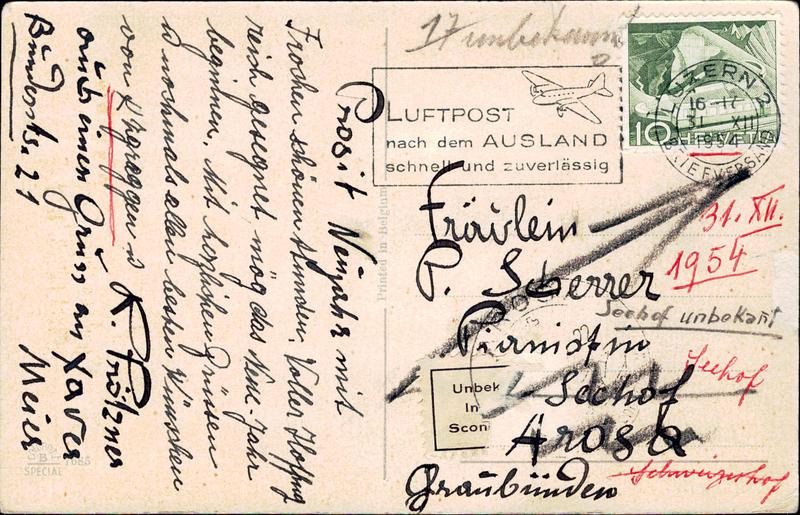 Prosit Neujahr mit
Frohen schönen Stunden. Voller Hoffnung
reich gesegnet mög das Neue-Jahr
beginnen. Mit herzlichen Grüssen
u nochmals allen besten Wünschen
von
K. Pfötzner
auch einen Gruss an Xaver
Meier
Bundesstr. 21
SPECIAL
Printed in Belgium
17 unbekannt
LUFTPOST
nach dem AUSLAND
schnell und zuverlässig
10
HELVETIA
LUZERN 2
16-17
31. XII
1954
BRIEFVERSAND
31. XII.
1954
Fräulein
P. Scherrer
Seehof unbekant
Pianistin
Seehof
Seehof
Unbek
In
Scon
Arosa
Schweizerhof
Graubünden